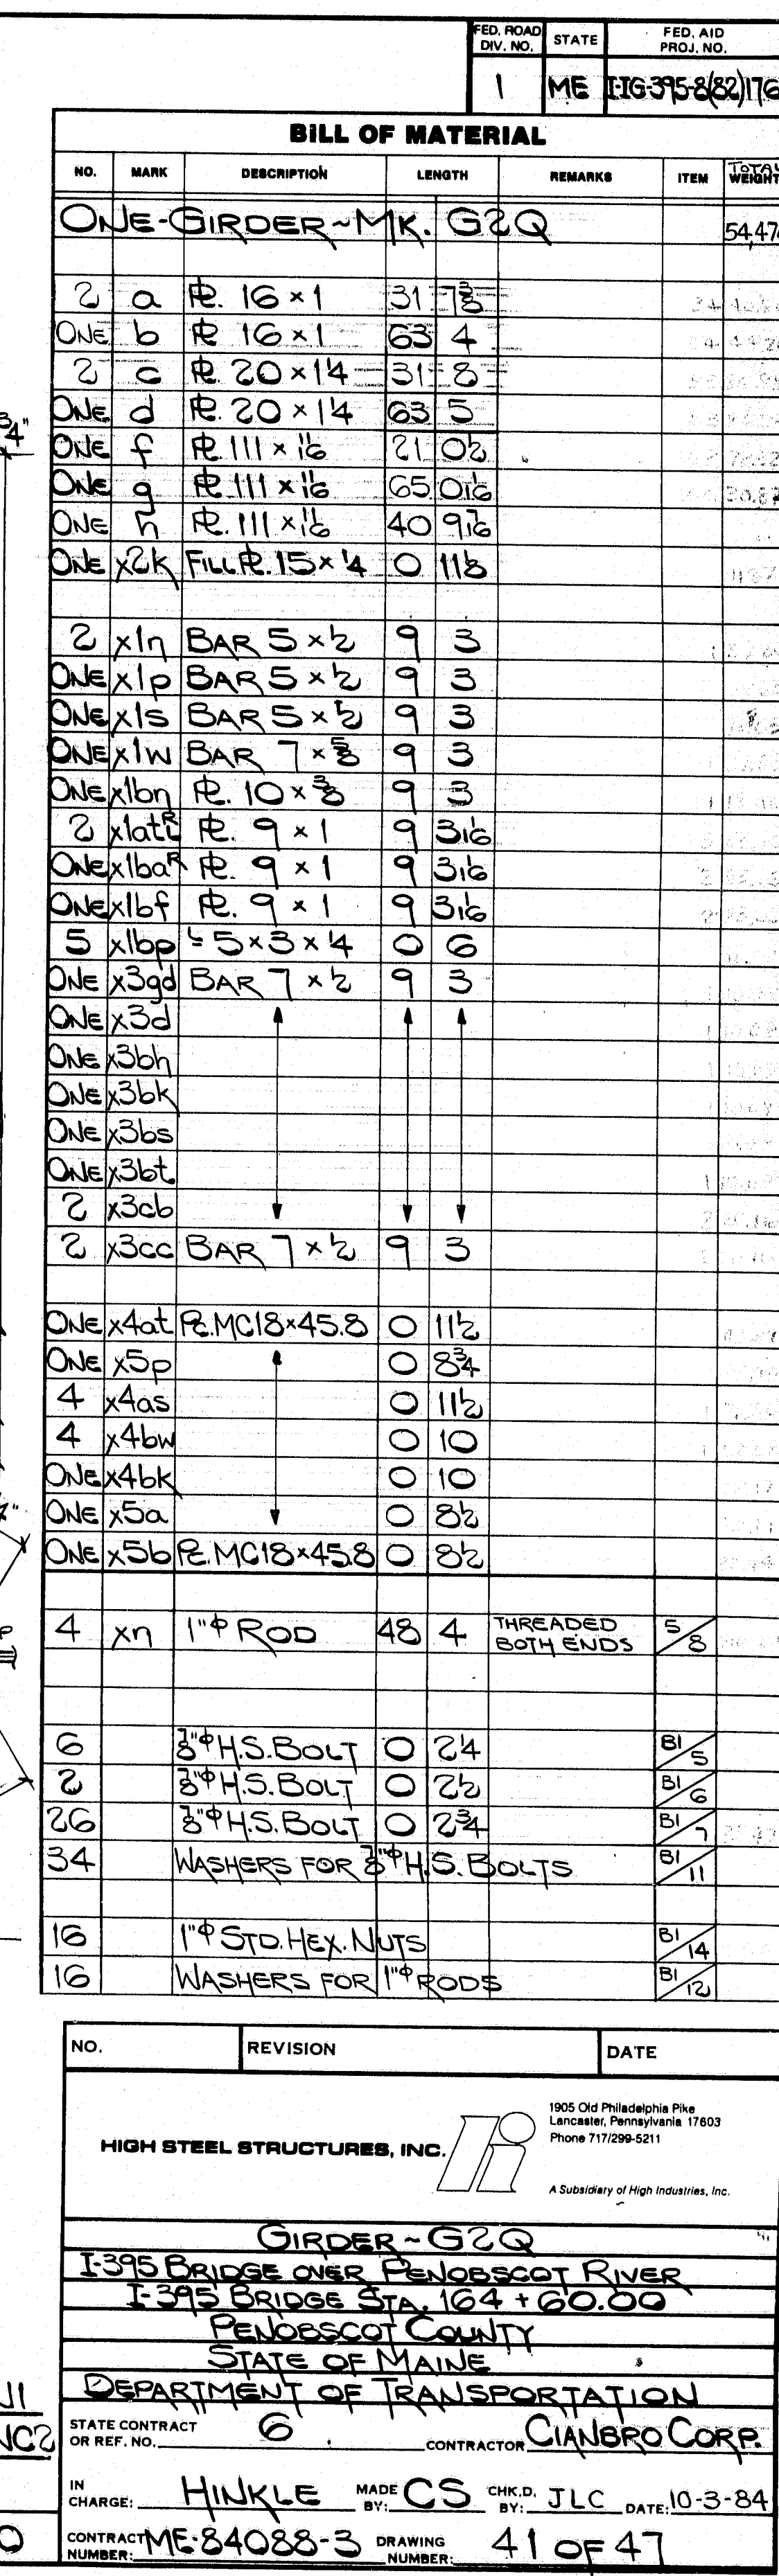 FED. ROAD DIV. NO. STATE FED. AID PROJ. NO.
1 ME I-IG-395-8(82)176
BILL OF MATERIAL
NO. MARK DESCRIPTION LENGTH REMARKS ITEM TOTAL WEIGHT
ONE-GIRDER~MK. G2Q 54,47
2 a PL. 16 × 1 31 7 3/8
ONE b PL 16 × 1 63 4
2 c PL. 20 × 1 1/4 31 8
ONE d PL. 20 × 1 1/4 63 5
ONE f PL. 111 × 11/16 21 0 1/2
ONE g PL. 111 × 11/16 65 0 1/16
ONE h PL. 111 × 11/16 40 9 7/16
ONE x2k FILL PL. 15 × 1/4 0 11 1/8
2 x1n BAR 5 × 1/2 9 3
ONE x1p BAR 5 × 1/2 9 3
ONE x1s BAR 5 × 1/2 9 3
ONE x1w BAR 7 × 5/8 9 3
ONE x1bn PL. 10 × 3/8 9 3
2 x1at R/L PL. 9 × 1 9 3 1/16
ONE x1ba R PL. 9 × 1 9 3 1/16
ONE x1bf PL. 9 × 1 9 3 1/16
5 x1bp L 5 × 3 × 1/4 0 6
ONE x3gd BAR 7 × 1/2 9 3
ONE x3d
ONE x3bh
ONE x3bk
ONE x3bs
ONE x3bt
2 x3cb
2 x3cc BAR 7 × 1/2 9 3
ONE x4at PC. MC18×45.8 0 11 1/2
ONE x5p 0 8 3/4
4 x4as 0 11 1/2
4 x4bw 0 10
ONE x4bk 0 10
ONE x5a 0 8 1/2
ONE x5b PC. MC18×45.8 0 8 1/2
4 xn 1"Φ ROD 48 4 THREADED BOTH ENDS 5/8
6 7/8"Φ H.S. BOLT 0 2 1/4 B1/5
2 7/8"Φ H.S. BOLT 0 2 1/2 B1/6
26 7/8"Φ H.S. BOLT 0 2 3/4 B1/7
34 WASHERS FOR 7/8"Φ H.S. BOLTS B1/11
16 1"Φ STD. HEX. NUTS B1/14
16 WASHERS FOR 1"Φ RODS B1/12
NO. REVISION DATE
HIGH STEEL STRUCTURES, INC.
1905 Old Philadelphia Pike
Lancaster, Pennsylvania 17603
Phone 717/299-5211
A Subsidiary of High Industries, Inc.
GIRDER ~ G2Q
I-395 BRIDGE OVER PENOBSCOT RIVER
I-395 BRIDGE STA. 164 + 60.00
PENOBSCOT COUNTY
STATE OF MAINE
DEPARTMENT OF TRANSPORTATION
STATE CONTRACT OR REF. NO. 6 CONTRACTOR CIANBRO CORP.
IN CHARGE: HINKLE MADE BY: CS CHK.D. BY: JLC DATE: 10-3-84
CONTRACT NUMBER: ME-84088-3 DRAWING NUMBER: 41 OF 47